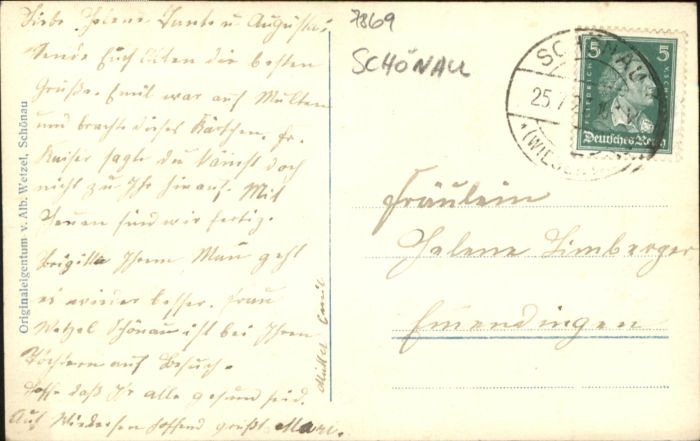 Liebe Helene Tante u. Auguste!
Sende Euch allen die besten
Grüße. Emil war auf Multen
und brachte dieses Kärtchen. Fr.
Kaiser sagte du kämst doch
nicht zu Ihr hinauf. Mit
Heuen sind wir fertig.
Brigitta Ihrem Mann geht
es wieder besser. Frau
Wetzel Schönau ist bei Ihren
Töchtern auf Besuch.
Hoffe daß Ihr alle gesund seid.
Auf Wiedersehen hoffend grüßt Marie.
Emil
Originaleigentum v. Alb. Wetzel, Schönau
7869
SCHÖNAU
SCHÖNAU
25.7
(WIESEN
5 5
FRIEDRICH
Deutsches Reich
Fräulein
Helene Limberger
Emmendingen